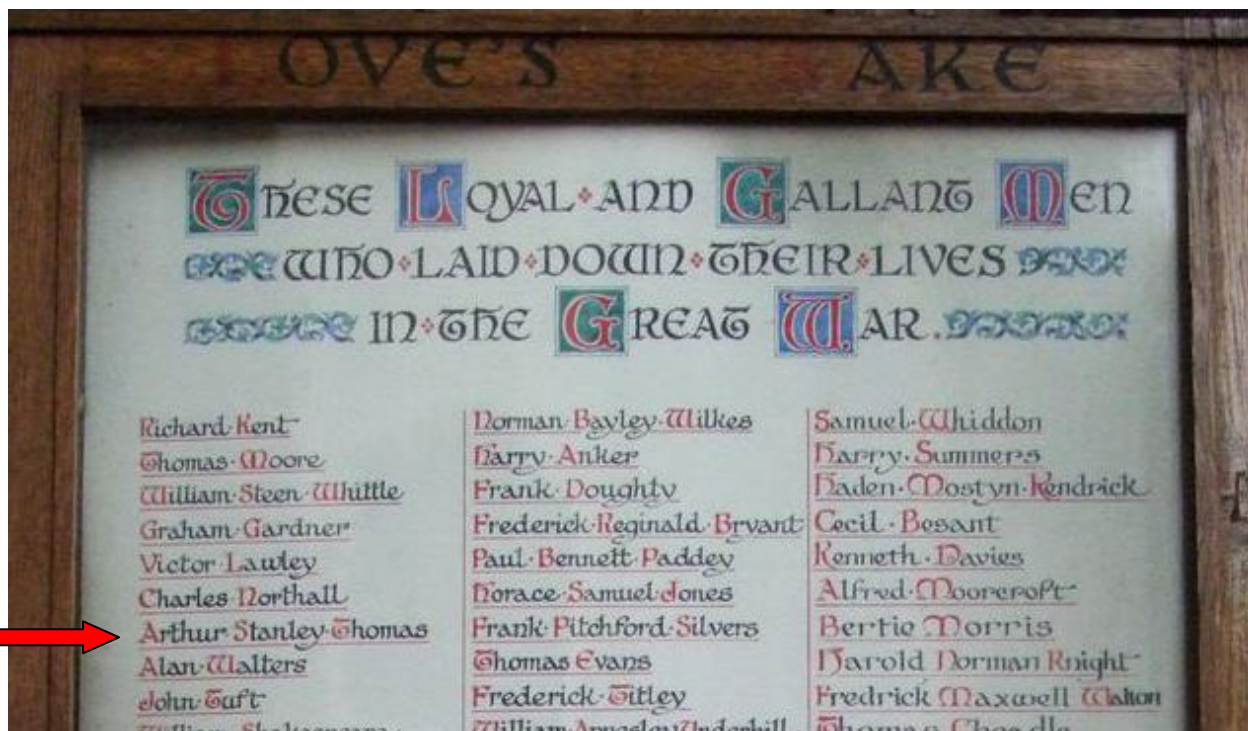 OVE'S AKE
THESE LOYAL AND GALLANT MEN
WHO LAID DOWN THEIR LIVES
IN THE GREAT WAR.
Richard Kent
Thomas Moore
William Steen Whittle
Graham Gardner
Victor Lawley
Charles Northall
Arthur Stanley Thomas
Alan Walters
John Tuft
William Shakespeare
Norman Bayley Wilkes
Harry Anker
Frank Doughty
Frederick Reginald Bryant
Paul Bennett Paddey
Horace Samuel Jones
Frank Pitchford Silvers
Thomas Evans
Frederick Titley
William Annesley Underhill
Samuel Whiddon
Harry Summers
Haden Mostyn Kendrick
Cecil Besant
Kenneth Davies
Alfred Moorcroft
Bertie Morris
Harold Norman Knight
Fredrick Maxwell Walton
Thomas